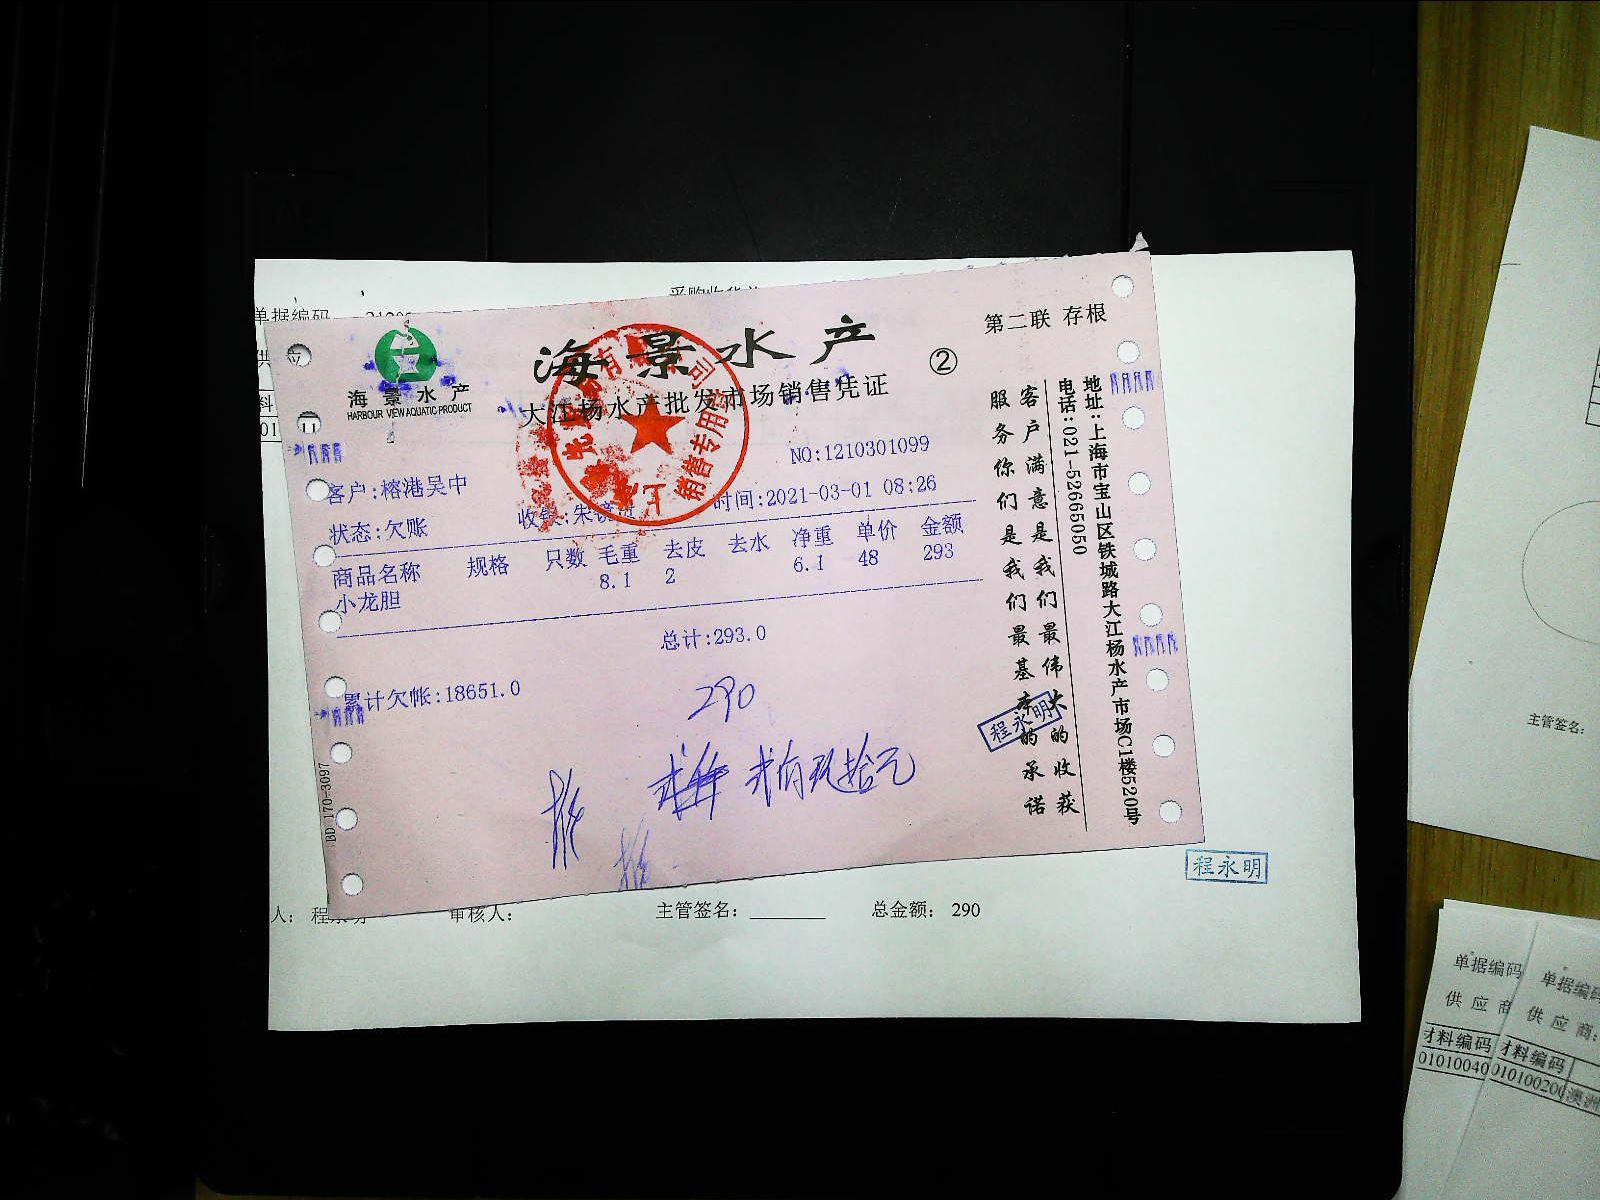 采购收货
单据编码
供 应
料
01
海 景 水 产
HARBOUR VIEW AQUATIC PRODUCT
海景水产
大江杨水产批发市场销售凭证
②
第二联 存根
销售专用章
NO:1210301099
客户:榕港吴中
状态:欠账
时间:2021-03-01 08:26
商品名称 规格 只数 毛重 去皮 去水 净重 单价 金额
小龙胆 8.1 2 6.1 48 293
总计:293.0
累计欠帐:18651.0
290
贰佰玖拾元
客户满意是我们最伟大的收获
服务你们是我们最基本的承诺
地址:上海市宝山区铁城路大江杨水产市场C1楼520号
电话:021-52665050
程永明
BD 170-3097
程永明
人: 程永明 审核人: 主管签名: 总金额: 290
主管签名:
单据编码
供 应 商
材料编码
01010040
单据编码
供 应 商:
材料编码
010100200 澳洲